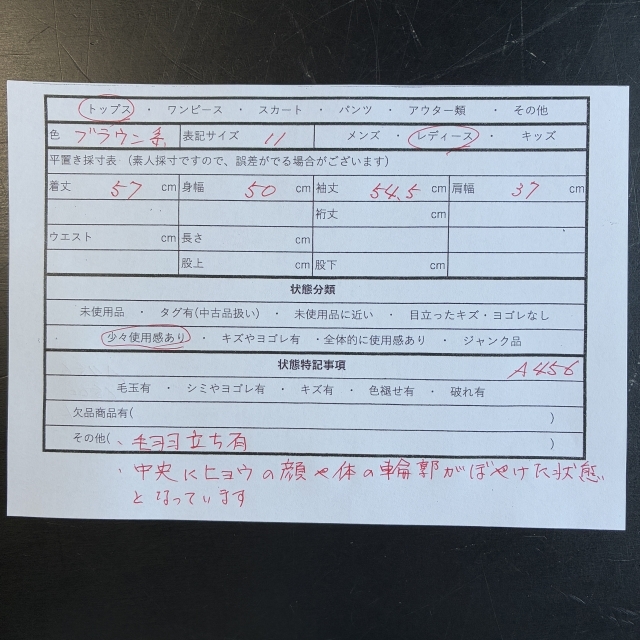 トップス ・ ワンピース ・ スカート ・ パンツ ・ アウター類 ・ その他
色 ブラウン系 表記サイズ 11 メンズ ・ レディース ・ キッズ
平置き採寸表 (素人採寸ですので、誤差がでる場合がございます)
着丈 57 cm 身幅 50 cm 袖丈 54.5 cm 肩幅 37 cm
裄丈 cm
ウエスト cm 長さ cm
股上 cm 股下 cm
状態分類
未使用品 ・ タグ有(中古品扱い) ・ 未使用品に近い ・ 目立ったキズ・ヨゴレなし
少々使用感あり ・ キズやヨゴレ有 ・全体的に使用感あり ・ ジャンク品
状態特記事項 A456
毛玉有 ・ シミやヨゴレ有 ・ キズ有 ・ 色褪せ有 ・ 破れ有
欠品商品有( )
その他( ・毛羽立ち有 )
・中央にヒョウの顔や体の輪郭がぼやけた状態
となっています